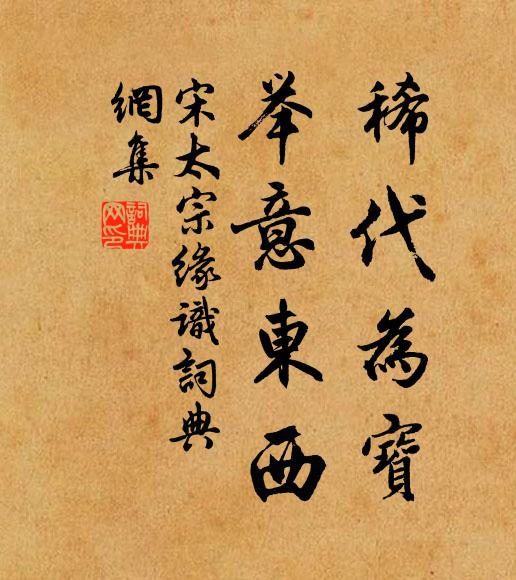 稀代為寶
举意東西
宋太宗緣識詞典
網集
詞典
网印